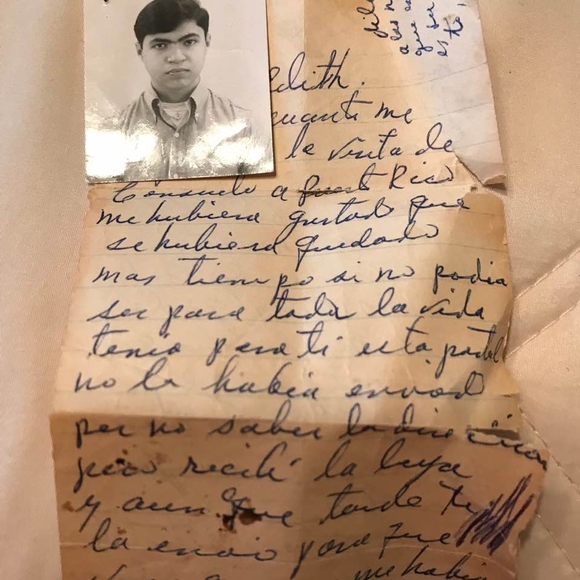 a las
que su
es
ti,
Edith.
me
la visita de
Consuelo a puert Rico
me hubiera gustado que
se hubiera quedado
mas tiempo si no podia
ser para toda la vida
tenia para ti esta postal
no la habia enviad
por no saber la direccion
pero recibi la tuya
y aun que tarde te
la envio para que
me habia